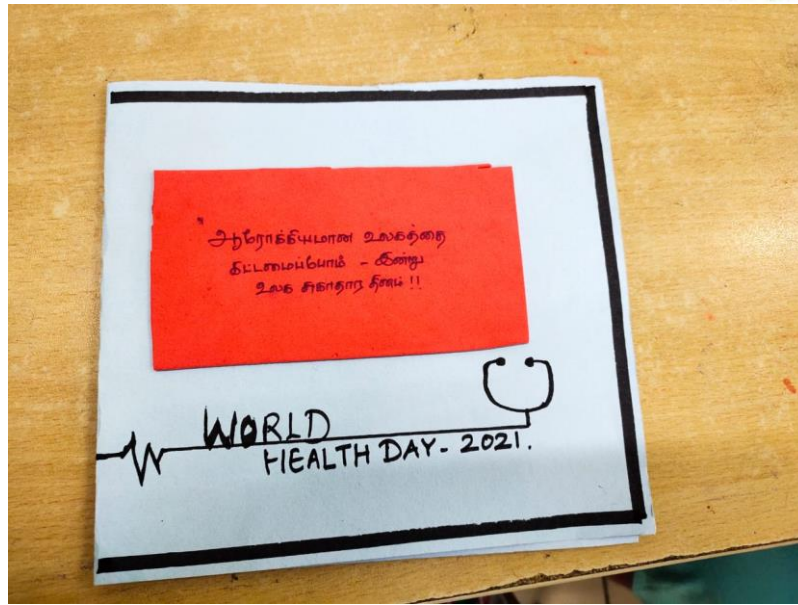 ஆரோக்கியமான உலகத்தை
கட்டமைப்போம் - இன்று
உலக சுகாதார தினம் !!
WORLD
HEALTH DAY - 2021.